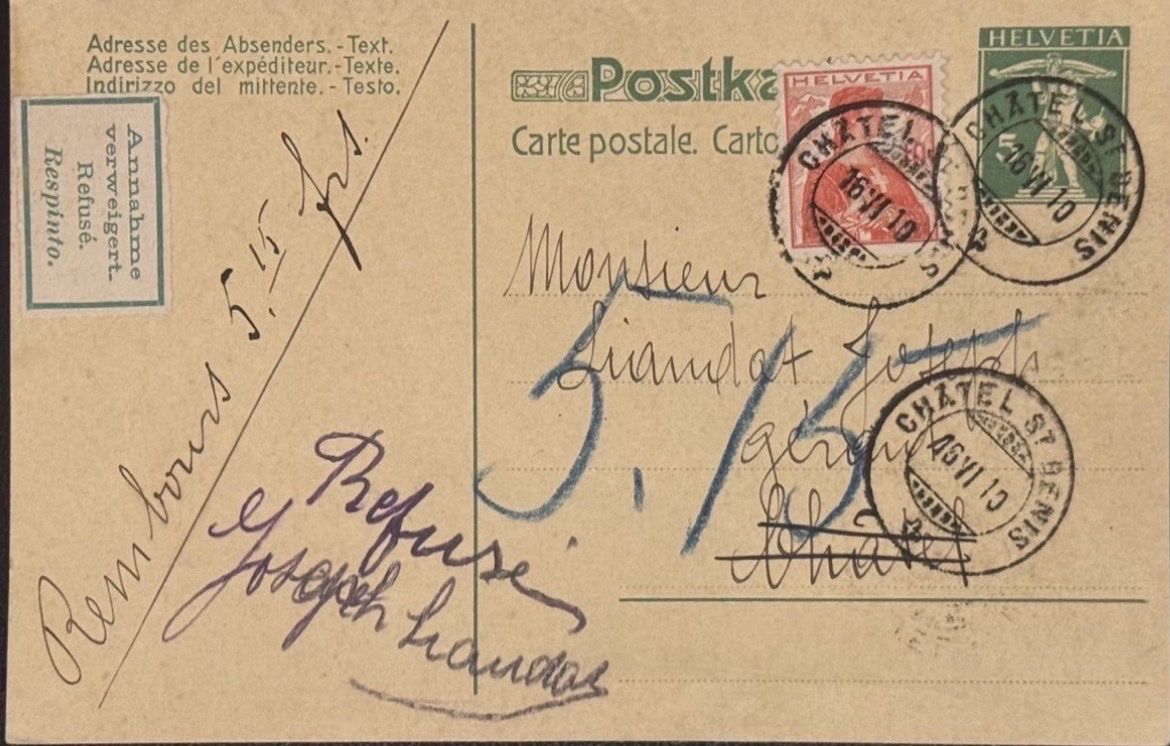 Adresse des Absenders.-Text.
Adresse de l'expéditeur.-Texte.
Indirizzo del mittente.-Testo.
Annahme
verweigert.
Refusé.
Respinto.
Rembours 5.15 frs.
Refusé
Joseph Liaudat
Postka
Carte postale. Carto
HELVETIA
HELVETIA
5
CHÂTEL ST DENIS
16 VI 10
CHÂTEL ST DENIS
16 VI 10
Monsieur
Liaudat Joseph
5.15
CHÂTEL ST DENIS
16 VI 10